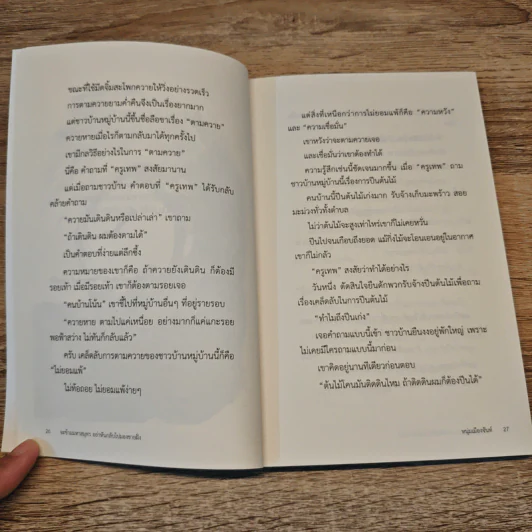 ขณะที่ใช้มีดจิ้มสะโพกควายให้วิ่งอย่างรวดเร็ว
การตามควายยามค่ำคืนจึงเป็นเรื่องยากมาก
แต่ชาวบ้านหมู่บ้านนี้ขึ้นชื่อลือชาเรื่อง “ตามควาย”
ควายหายเมื่อไรก็ตามกลับมาได้ทุกครั้งไป
เขามีกลวิธีอย่างไรในการ “ตามควาย”
นี่คือ คำถามที่ “ครูเทพ” สงสัยมานาน
แต่เมื่อถามชาวบ้าน คำตอบที่ “ครูเทพ” ได้รับกลับ
คล้ายคำถาม
“ควายมันเดินดินหรือเปล่าเล่า” เขาถาม
“ถ้าเดินดิน ผมต้องตามได้”
เป็นคำตอบที่ง่ายแต่ลึกซึ้ง
ความหมายของเขาก็คือ ถ้าควายยังเดินดิน ก็ต้องมี
รอยเท้า เมื่อมีรอยเท้า เขาก็ต้องตามรอยเจอ
“คนบ้านโน้น” เขาชี้ไปที่หมู่บ้านอื่นๆ ที่อยู่รายรอบ
“ควายหาย ตามไปแค่เหนื่อย อย่างมากก็แค่แกะรอย
พอฟ้าสว่าง ไม่ทันก็กลับแล้ว”
ครับ เคล็ดลับการตามควายของชาวบ้านหมู่บ้านนี้ก็คือ
“ไม่ยอมแพ้”
ไม่ท้อถอย ไม่ยอมแพ้ง่ายๆ
26
แต่สิ่งที่เหนือกว่าการไม่ยอมแพ้ก็คือ “ความหวัง”
และ “ความเชื่อมั่น”
เขาหวังว่าจะตามควายเจอ
และเชื่อมั่นว่าเขาต้องทำได้
ความรู้สึกเช่นนี้ชัดเจนมากขึ้น เมื่อ “ครูเทพ” ถาม
ชาวบ้านหมู่บ้านนี้เรื่องการปีนต้นไม้
คนบ้านนี้ปีนต้นไม้เก่งมาก รับจ้างเก็บมะพร้าว สอย
มะม่วงทั่วทั้งตำบล
ไม่ว่าต้นไม้จะสูงเท่าไหร่เขาก็ไม่เคยหวั่น
ปีนไปจนเกือบถึงยอด แม้กิ่งไม้จะโอนเอนอยู่ในอากาศ
เขาก็ไม่กลัว
“ครูเทพ” สงสัยว่าทำได้อย่างไร
วันหนึ่ง ตัดสินใจยืนดักพวกรับจ้างปีนต้นไม้เพื่อถาม
เรื่องเคล็ดลับในการปีนต้นไม้
“ทำไมถึงปีนเก่ง”
เจอคำถามแบบนี้เข้า ชาวบ้านยืนงงอยู่พักใหญ่ เพราะ
ไม่เคยมีใครถามแบบนี้มาก่อน
เขาคิดอยู่นานทีเดียวก่อนตอบ
“ต้นไม้โคนมันติดดินไหม ถ้าติดดินผมก็ต้องปีนได้”
หนุ่มเมืองจันท์ 27